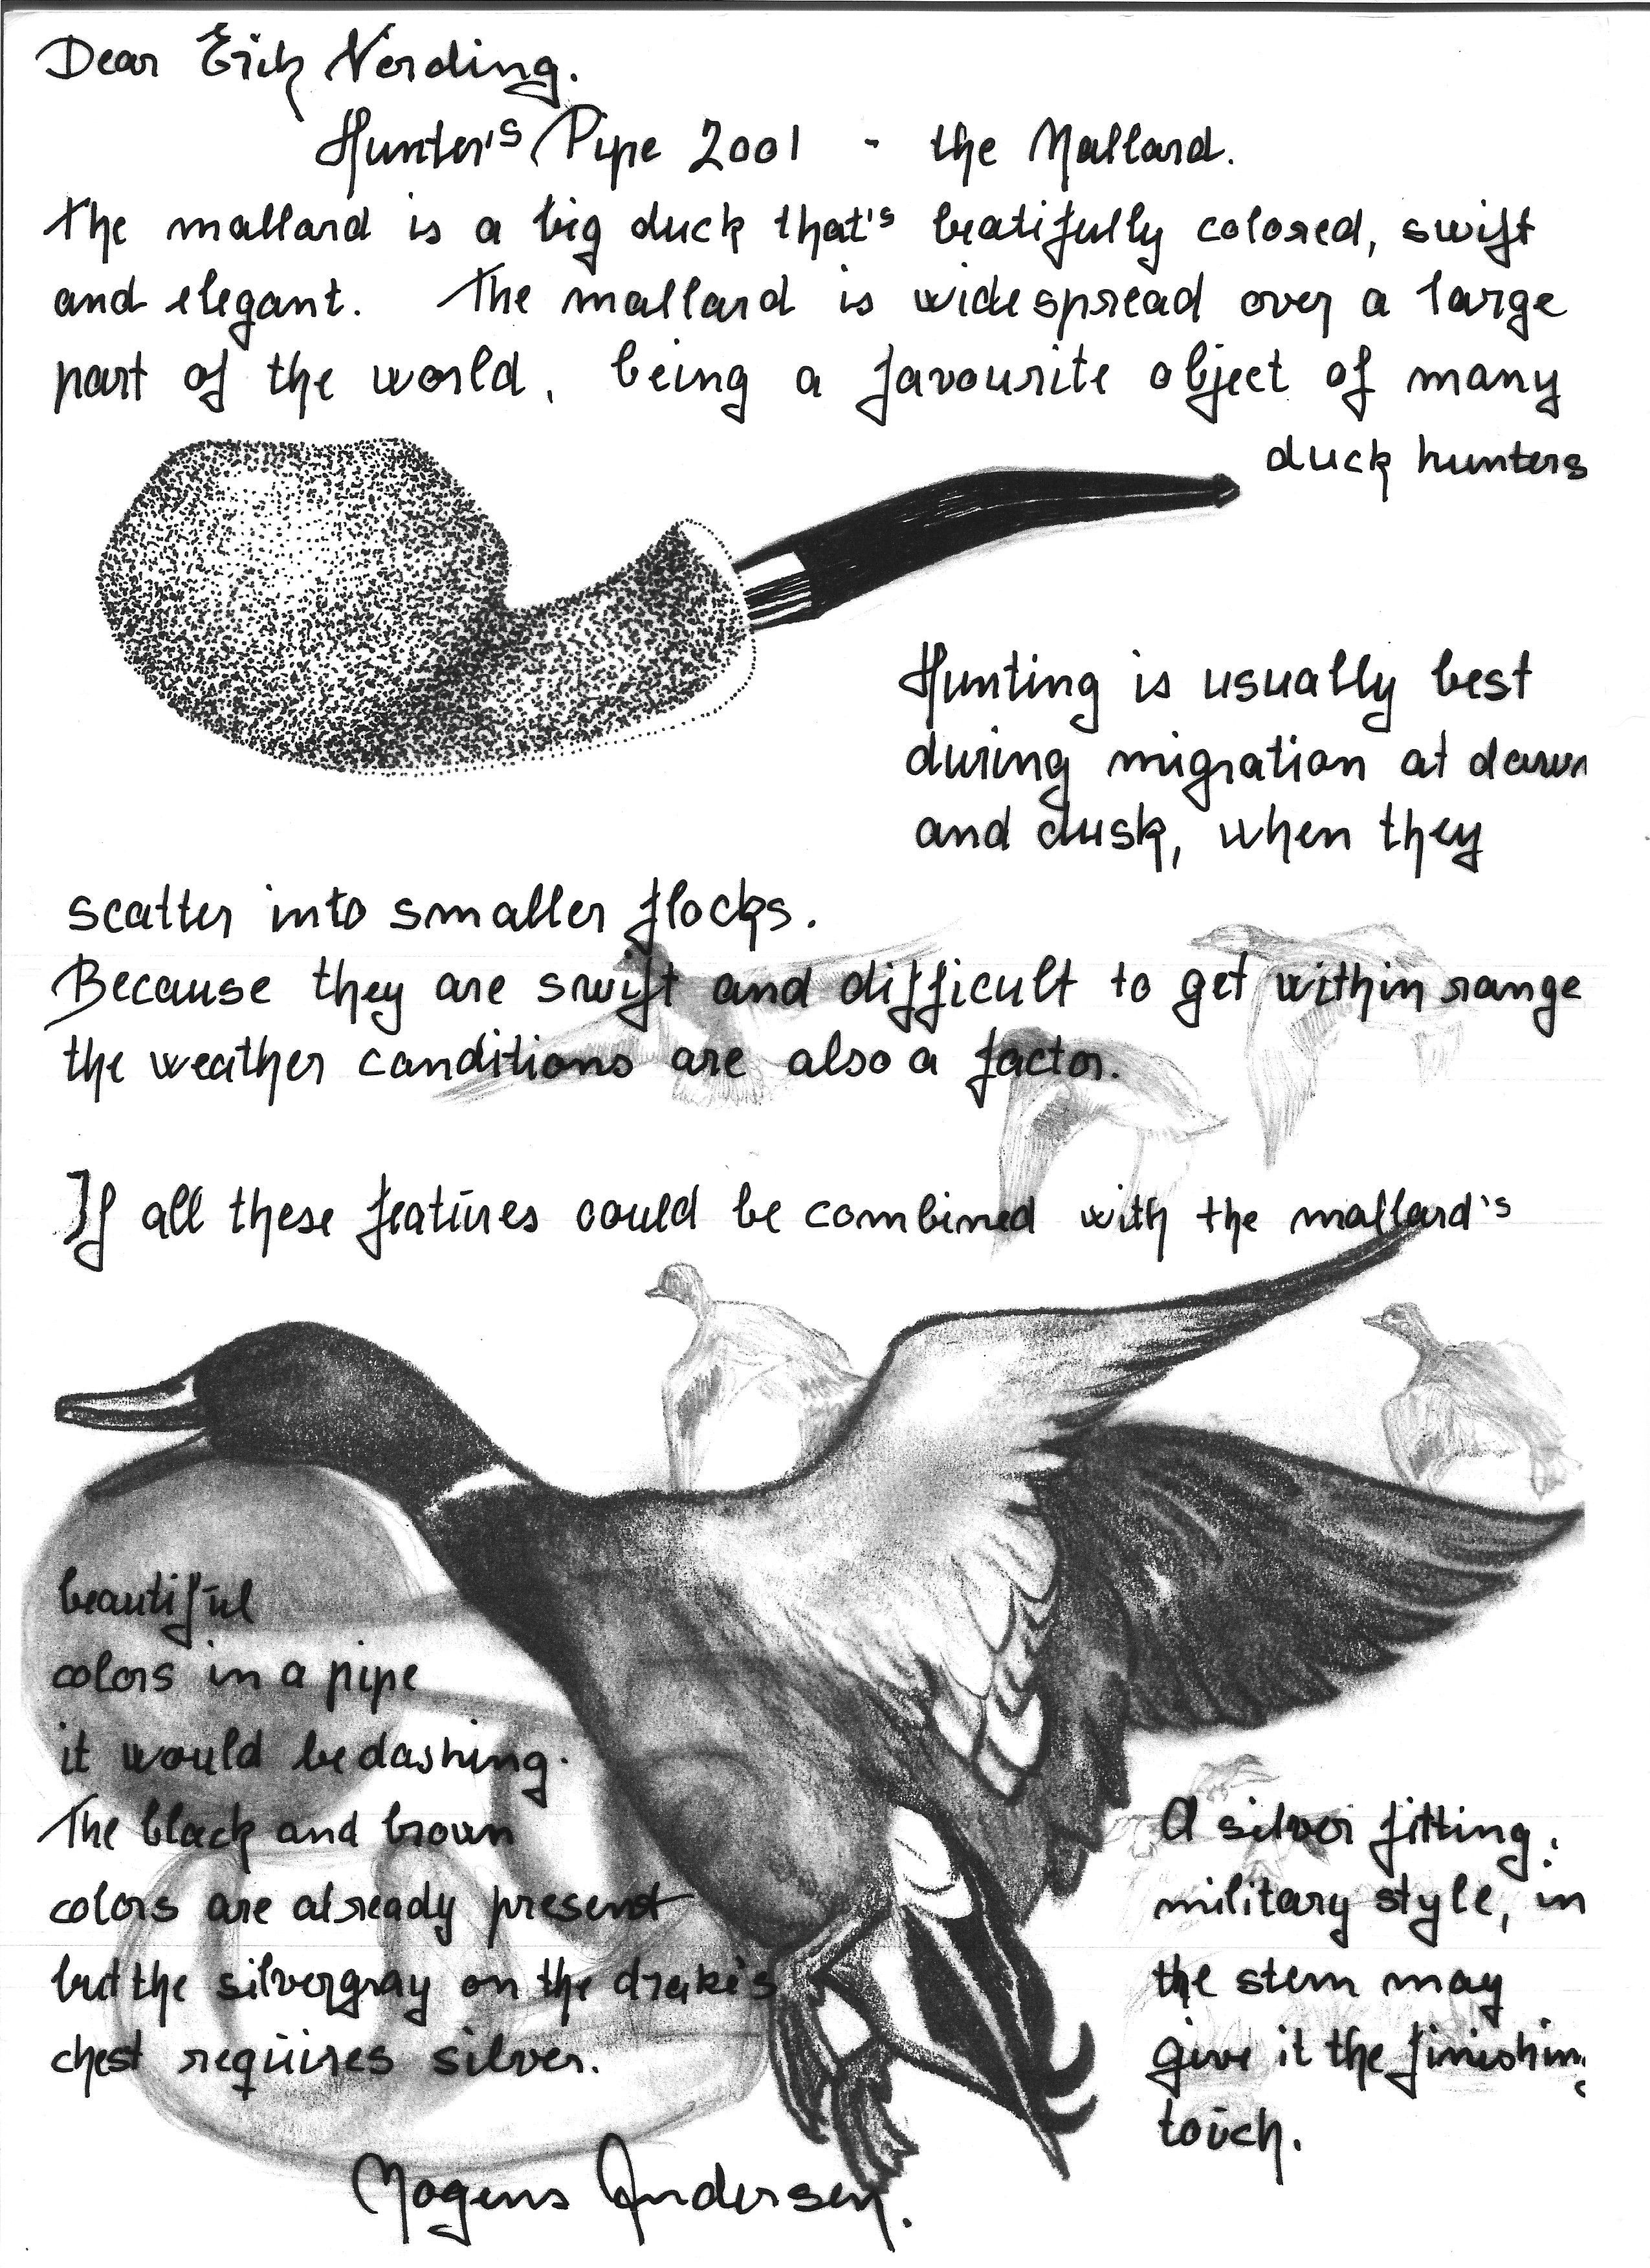 Dear Erik Nørding.
Hunter's Pipe 2001 - the Mallard.
The mallard is a big duck that's beatifully colored, swift
and elegant. The mallard is widespread over a large
part of the world, being a favourite object of many
duck hunters
Hunting is usually best
during migration at dawn
and dusk, when they
scatter into smaller flocks.
Because they are swift and difficult to get within range
the weather conditions are also a factor.
If all these features could be combined with the mallard's
beautiful
colors in a pipe
it would be dashing.
The black and brown
colors are already present
but the silvergray on the drake's
chest requires silver.
A silver fitting,
military style, in
the stem may
give it the finishin
touch.
Mogens Andersen.